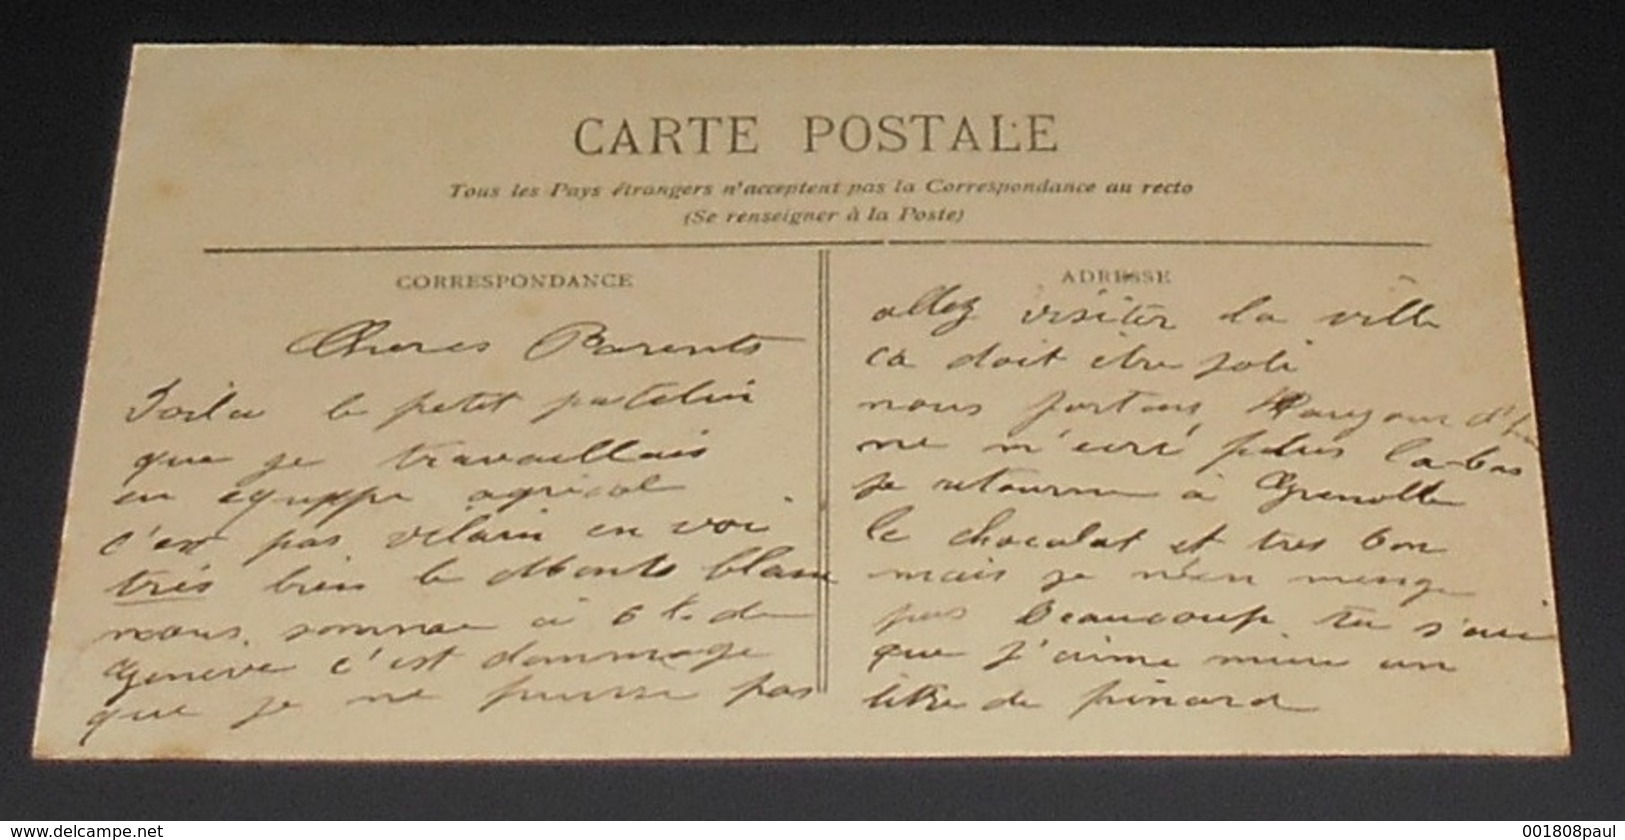 CARTE POSTALE
Tous les Pays étrangers n'acceptent pas la Correspondance au recto
(Se renseigner à la Poste)
CORRESPONDANCE
Cheres Parents
Voila le petit patelin
que je travaillais
en equippe agricol
c'est pas vilain en voi
très bien le Monts blanc
nous somme à 6 k. de
Geneve c'est dommage
que je ne puisse pas
ADRESSE
allez visiter la ville
ca doit être joli
nous partons
ne m'ecri plus la-bas
je retourne à Grenoble
le chocolat et tres bon
mais je n'en mange
pas beaucoup tu s'ai
que j'aime mieu un
litre de pinard
delcampe.net
001808paul